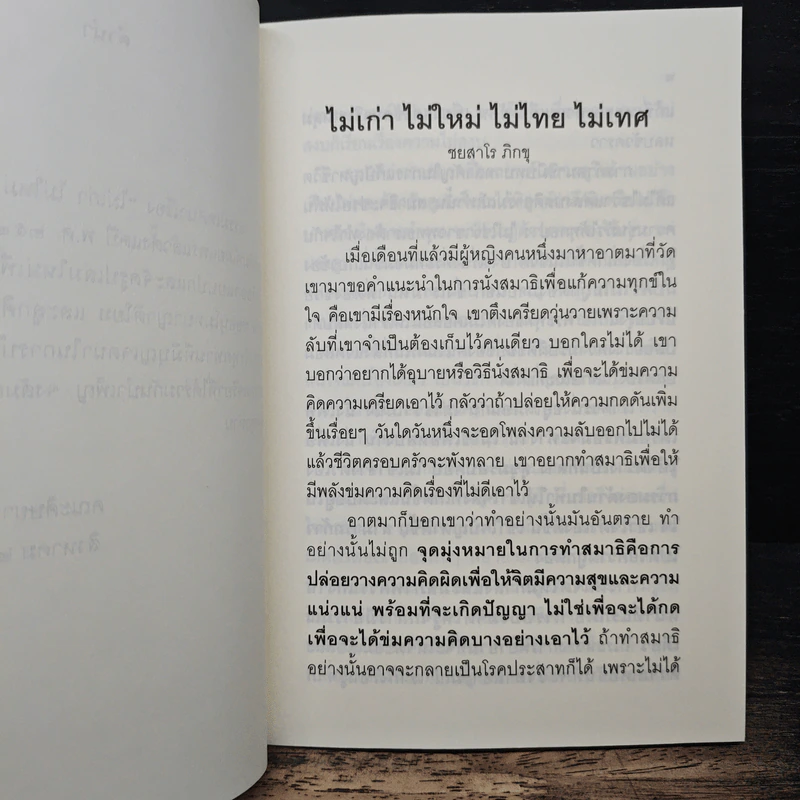 ไม่เก่า ไม่ใหม่ ไม่ไทย ไม่เทศ
ชยสาโร ภิกขุ
เมื่อเดือนที่แล้วมีผู้หญิงคนหนึ่งมาหาอาตมาที่วัด
เขามาขอคำแนะนำในการนั่งสมาธิเพื่อแก้ความทุกข์ใน
ใจ คือเขามีเรื่องหนักใจ เขาตึงเครียดวุ่นวายเพราะความ
ลับที่เขาจำเป็นต้องเก็บไว้คนเดียว บอกใครไม่ได้ เขา
บอกว่าอยากได้อุบายหรือวิธีนั่งสมาธิ เพื่อจะได้ข่มความ
คิดความเครียดเอาไว้ กลัวว่าถ้าปล่อยให้ความกดดันเพิ่ม
ขึ้นเรื่อยๆ วันใดวันหนึ่งจะอดโพล่งความลับออกไปไม่ได้
แล้วชีวิตครอบครัวจะพังทลาย เขาอยากทำสมาธิเพื่อให้
มีพลังข่มความคิดเรื่องที่ไม่ดีเอาไว้
อาตมาก็บอกเขาว่าทำอย่างนั้นมันอันตราย ทำ
อย่างนั้นไม่ถูก จุดมุ่งหมายในการทำสมาธิคือการ
ปล่อยวางความคิดผิดเพื่อให้จิตมีความสุขและความ
แน่วแน่ พร้อมที่จะเกิดปัญญา ไม่ใช่เพื่อจะได้กด
เพื่อจะได้ข่มความคิดบางอย่างเอาไว้ ถ้าทำสมาธิ
อย่างนั้นอาจจะกลายเป็นโรคประสาทก็ได้ เพราะไม่ได้